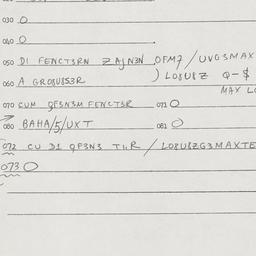 030 O
040 O
050 DI FENCT3RN ZAJN3N OFM7 / UVG3MAX
060 A GRO8U8S3R ) LO8U8Z Q-$
MAX LO
070 CUM QF3N3M FENCT3R 071 O
080 BAHA/5/UXT 081 O
072 CU D1 QF3N3 TIR / LO8U8ZG3MAXTE
073 O